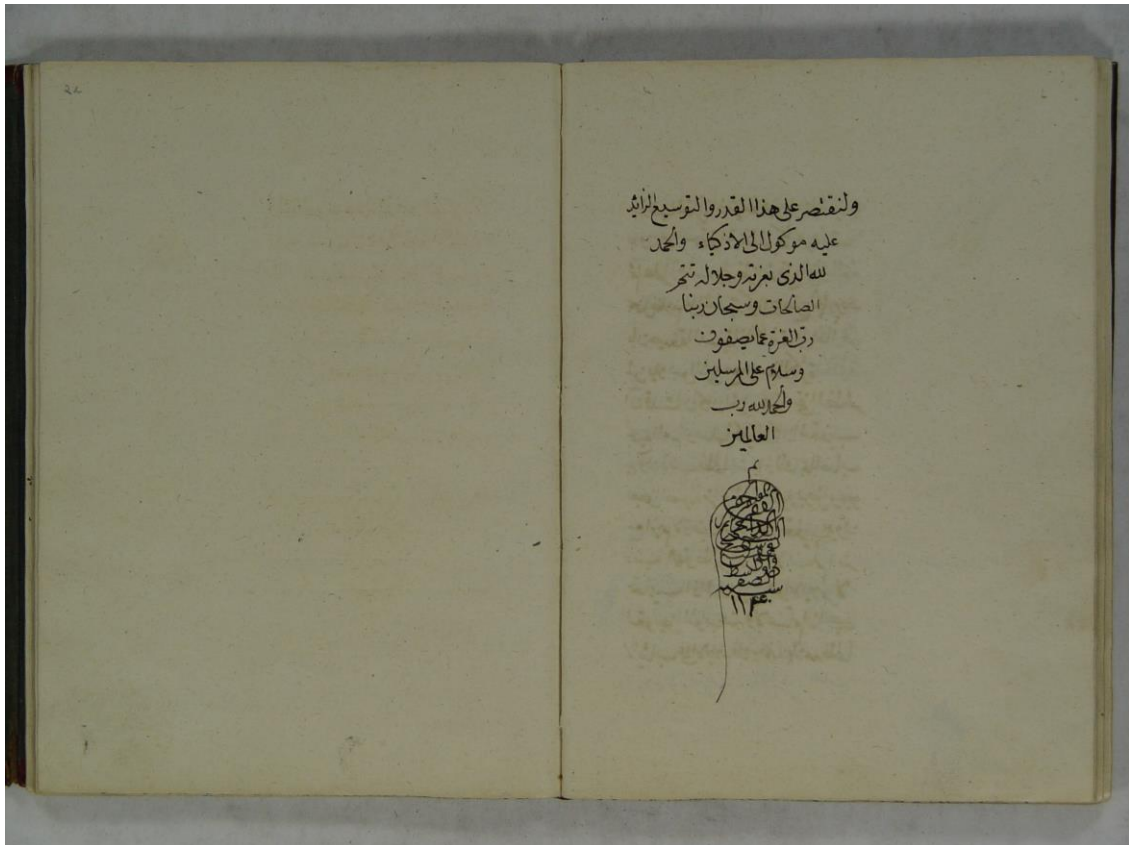 ولنقتصر على هذا القدر والتوسيع الزائد
عليه موكول الى الاذكياء والحمد
لله الذى بعزته وجلاله تتم
الصالحات وسبحان ربنا
رب العزة عما يصفون
وسلام على المرسلين
والحمد لله رب
العالمين